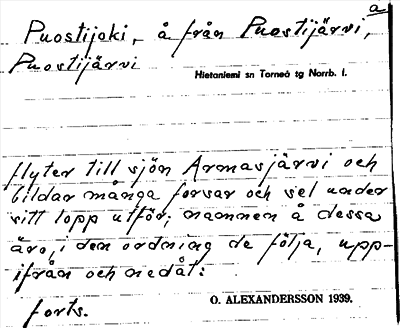 a
Puostijoki, å från Puostijärvi,
Puostijärvi
Hietaniemi sn Torneå tg Norrb. l.
flyter till sjön Armasjärvi och
bildar många forsar och sel under
sitt lopp utför; namnen å dessa
äro, i den ordning de följa, upp-
ifrån och nedåt:
O. ALEXANDERSSON 1939.
forts.